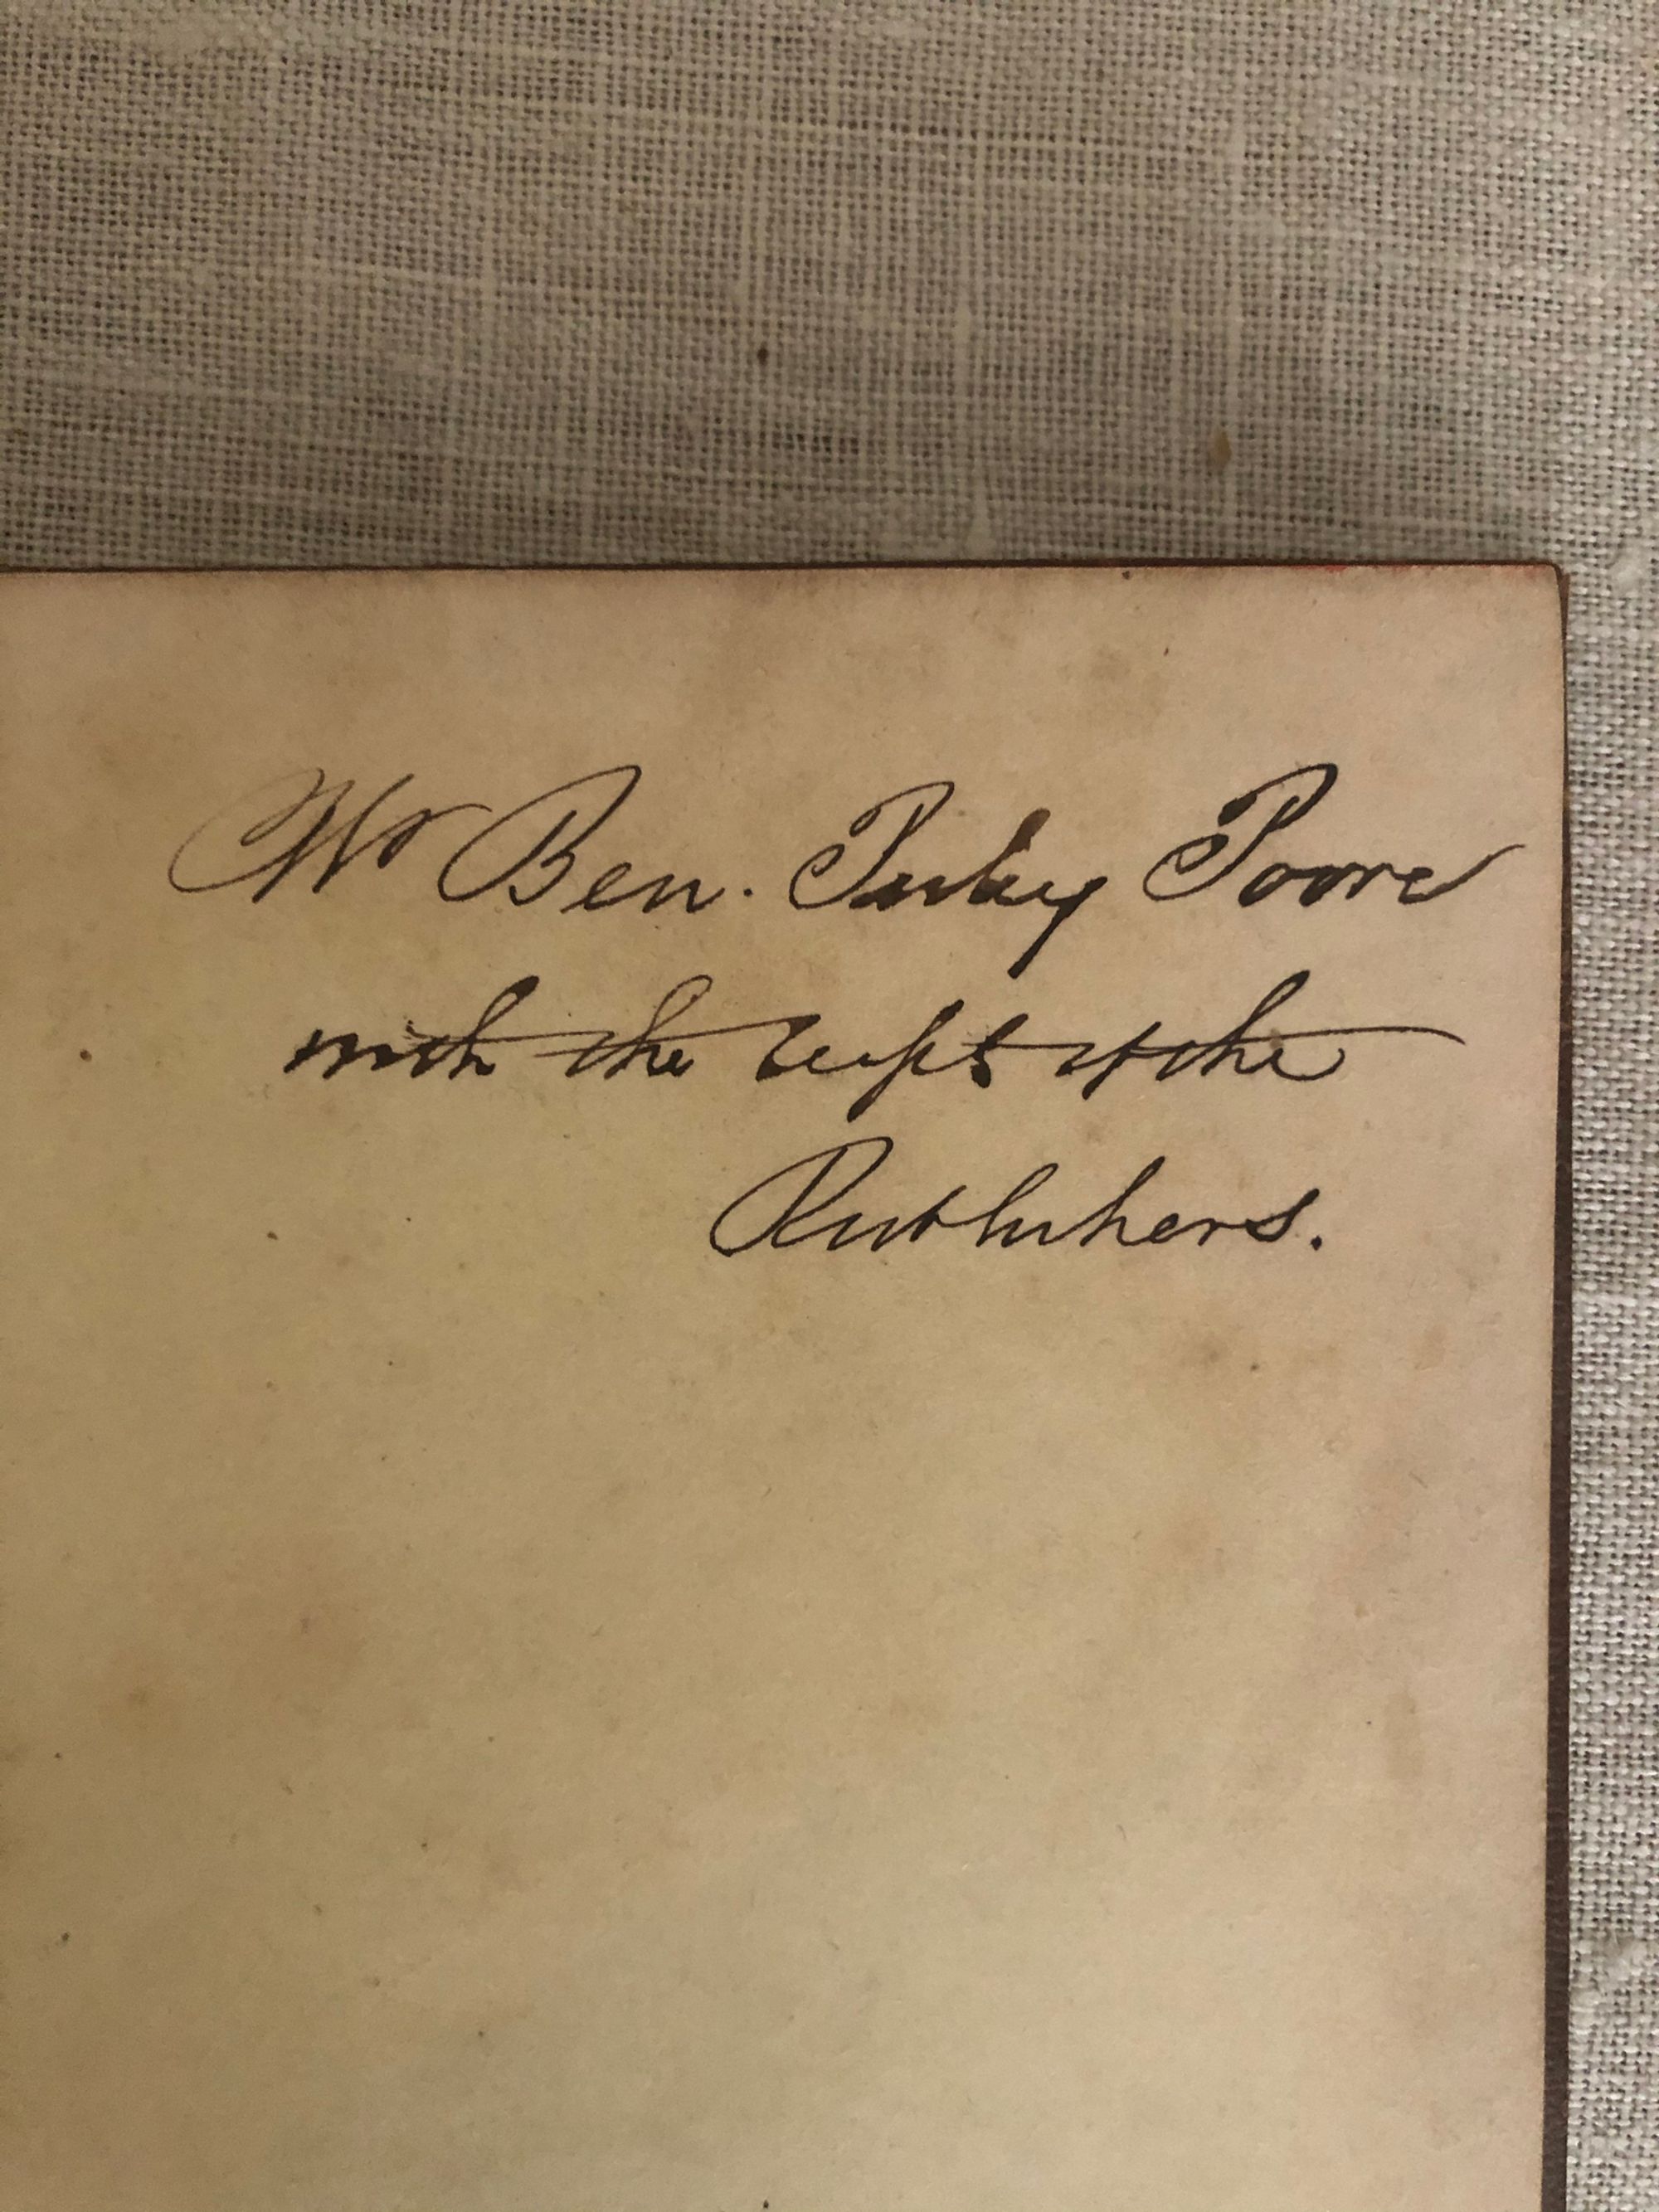 Mr Ben. Perley Poore
with the respts of the
Publishers.